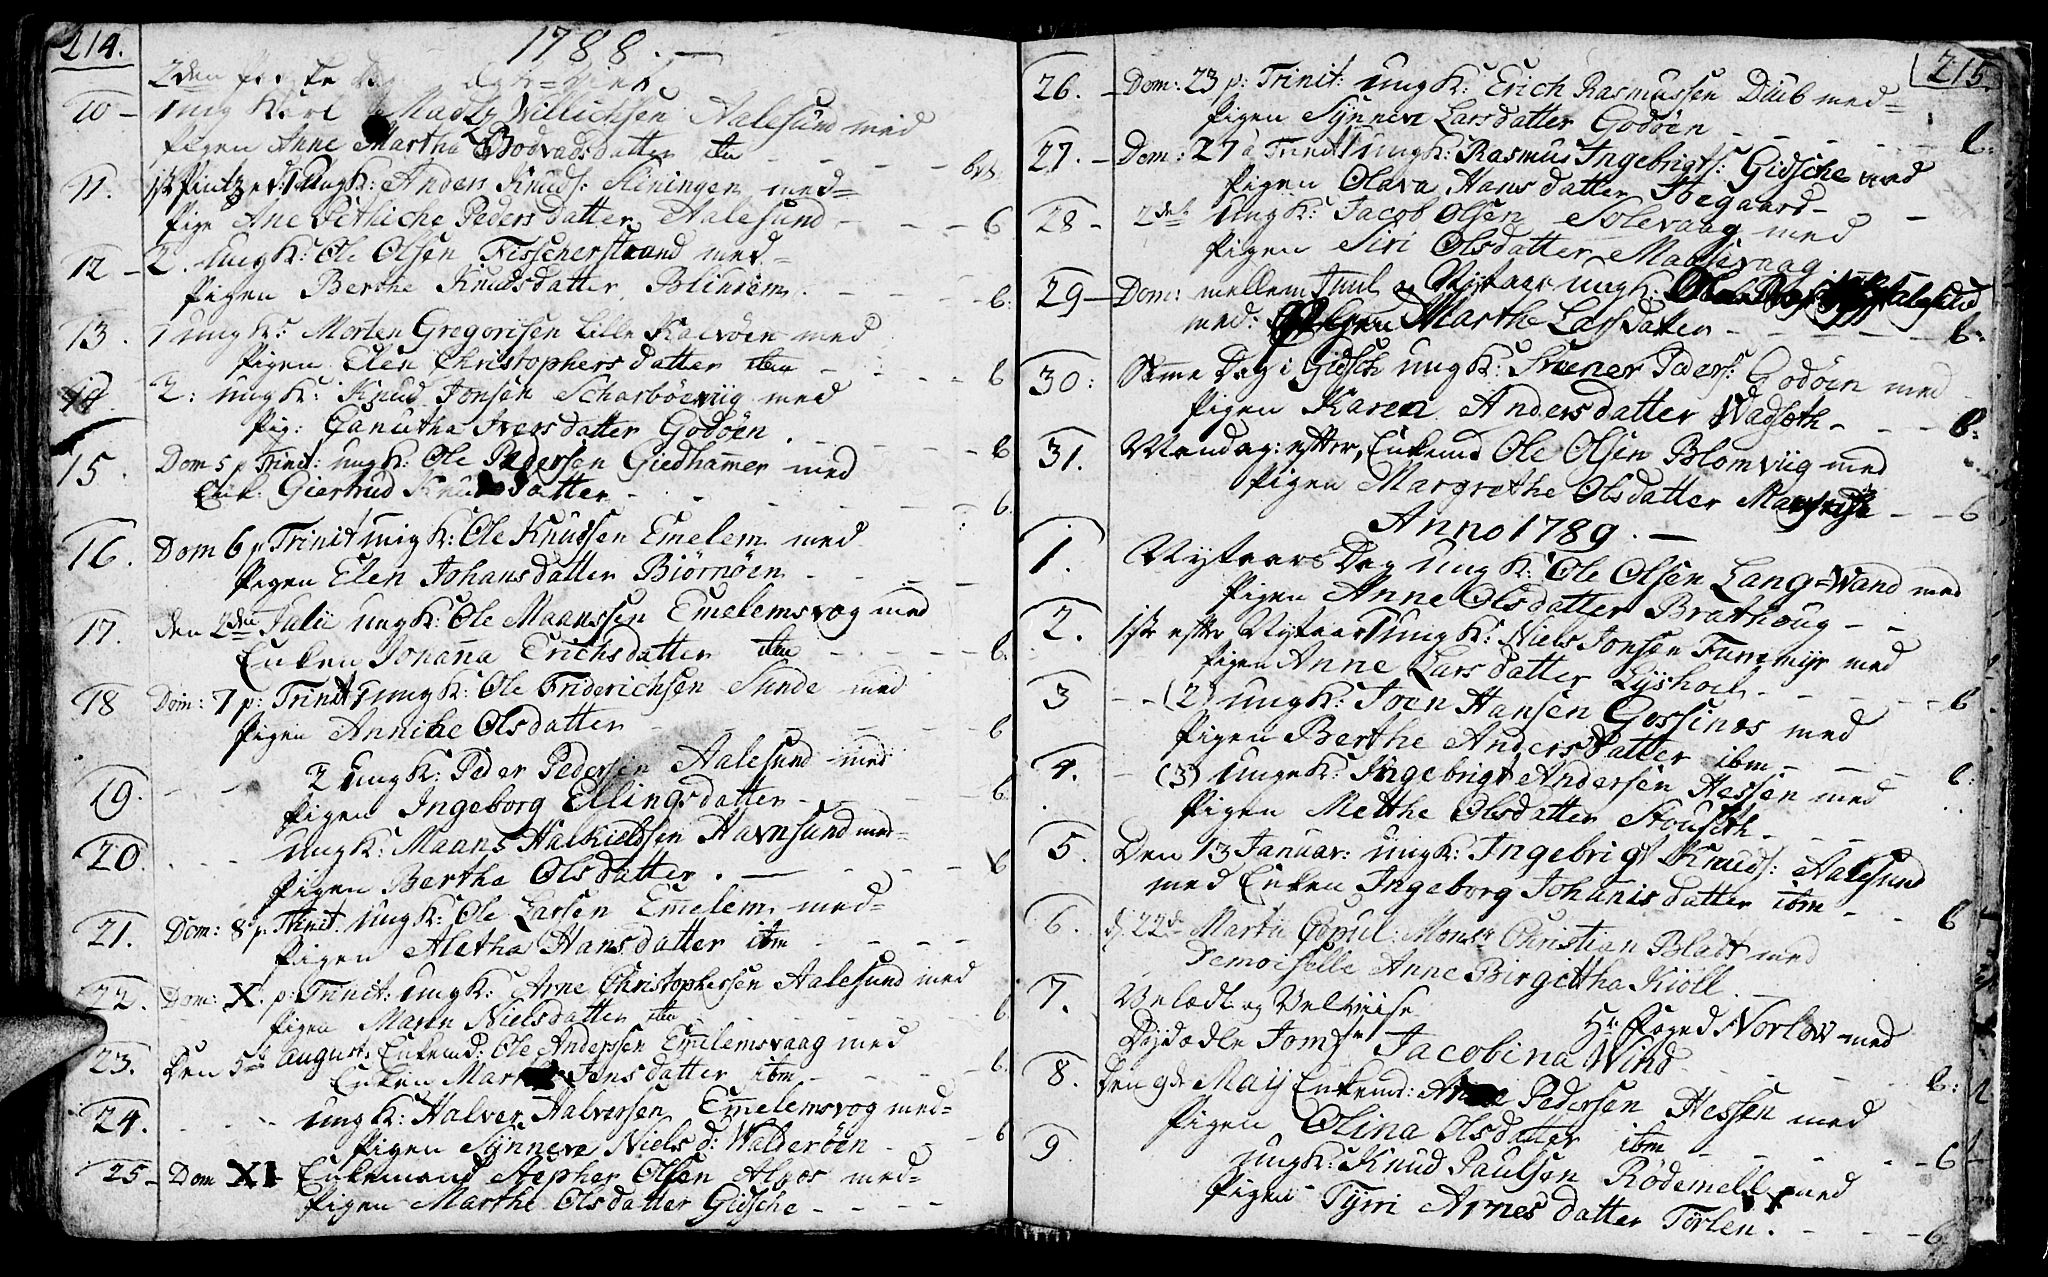 214.
1788. —
2den
10 - ung Karl Madtz Willichsen Aalesund med
Pigen Anne Martha Bodvadsdatter ibm - - - - b
11. 1ste Pintzed: 1 Ungk: Anders Knuds: Sliningen med=
Pige Ane Pethliche Peders datter Aalesund - - - 6
12 - 2. Ungk: Ole Olsen Fisscherstrand med -
Pigen Berthe Knudsdatter Blinhiem. - - - - b.
13. 1 ungk: Morten Gregorisen Lille Kalvøen med
Pigen Elen Christophers datter ibm - - - - b
14. 2: ungk: Knud Jonsen Scharbøevig med
Pig: Canutha Ivers datter Godøen . - - - b
15. Dom 5 p Trinit: ungk: Ole Pedersen Giedhammer med
Enk: Giertrud Knudsdatter - - - - b.
16. Dom 6 p Trinit ungk: Ole Knudsen Emelem med
Pigen Elen Johans datter Biørnøen - - - -
17. den 2den Julii ungk: Ole Maanssen Emelemsvog med
Enken Johanna Erichsdatter ibm - - - - b.
18 Dom: 7 p: Trinit 1 ungk: Ole Friderichsen Sunde med
Pigen Anniche Olsdatter - - - - b
19. - - 2 ungk: Peder Pedersen Aalesund med
Pigen Ingeborg Ellingsdatter - - - - b
20. - - ungk: Maans Halkieldsen Havnsund med=
Pigen Berthe Olsdatter. — - - - b
21. Dom: 8 p. Trinit. Ungk: Ole Larsen Emelem med=
Pigen Aletha Hans datter ibm - - - -
22. Dom: X. p: Trinit: ungk: Arne Christophersen Aalesund med
Pigen Maren Nielsdatter ibm - - - - b
23. Den 5te August: Enkemd: Ole Anderssen Emelemsvaag med
Enken Jens datter ibm - - - - b.
24. - - ungk: Halver Halversen Emelemsvog med=
Pigen Synneve Niels d: Walderøen - - b
25 - Dom XI Enkemand Stepher Olsen Alnos med=
Pigen Marthe Olsdatter Gidsche - - - -
215.
26. - Dom: 23 p: Trinit: ungk: Erich Rasmussen Diub med=
Pigen Synneve Larsdatter Godøen - - - - b.
27. - Dom: 27 a Trinit 1 ungk: Rasmus Ingebrigts: Gidsche med
Pigen Olava Hans datter Stoegaard - -
28 - 2det ungk: Jacob Olsen Solevaag med
Pigen Siri Olsdatter Mausevaag
29 - Dom: mellem Juul og Nytaar ungk: Aalesund
med: Pigen Marthe Larsdatter - - - - b.
30: Samme Dag i Gidsch ungk: Steener Peders: Godøen med
Pigen Karen Anders datter Wadsøth - - - b.
31. Mandag: efter, Enkemd Ole Olsen Blomviig med
Pigen Margrethe Olsdatter - - 6
Anno 1789. —
1. Nytaars Dag ungk: Ole Olsen Lang=Wand med
Pigen Anne Olsdatter Brathoug - -
2. 1ste efter Nytaar 1 ungk: Niels Jonsen Furmyr med
Pigen Anne Lars datter Lyshoel - - - -
3 - - (2) ungk: Joen Hansen Gossinos med - b
Pigen Berthe Anders datter ibm - - -
4. - (3) ungek: Ingebrigt Andersen Hessen med b.
Pigen Metthe Olsdatter Stouseth - - -
5. Den 13 Januar: ungk: Ingebrigt Knuds: Aalesund
med Enken Ingeborg Johanis datter ibm - - b
6. d. 22de Martii Copul: Monsr Christian Bladt med
Demoiselle Anne Birgettha Kiøll
7. Velædle og Velviise Hr: Foged Norlow med
Dydædle Jomfr Jacobina Wind - - - b.
8. Den 9de Maij Enkemd: Arne Pedersen Hessen med
Pigen Olina Olsdatter ibm - - - 6
9 ungk: Knud Paulsen Rødemell med
Pigen Tyrri Arnes datter Tørlen. - - - 6